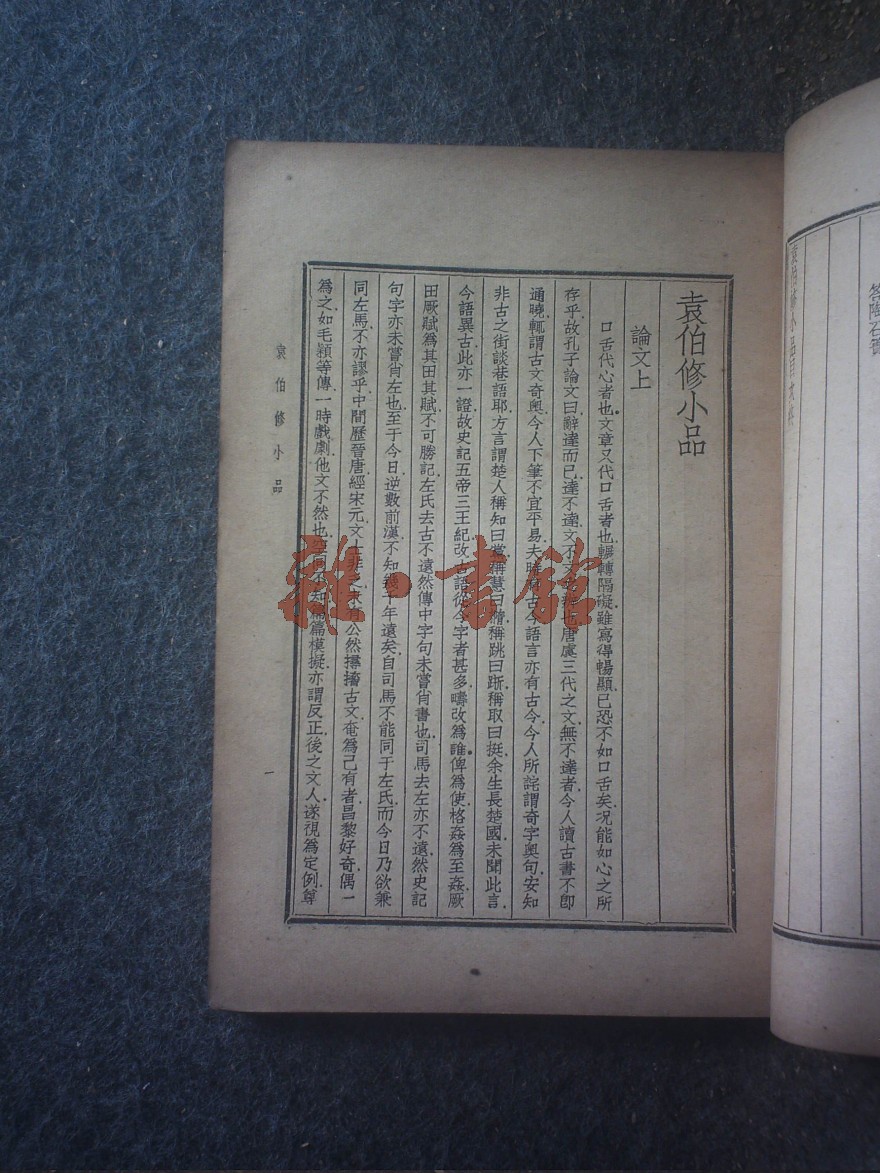 袁伯修小品
論文上
口舌代心者也文章又代口舌者也輾轉隔礙雖寫得暢顯已恐不如口舌矣况能如心之所
存乎故孔子論文曰辭達而已達不達文不文之辨也唐虞三代之文無不達者今人讀古書不卽
通曉輒謂古文奇奧今人下筆不宜平易夫時有古今語言亦有古今今人所詫謂奇字奧句安知
非古之街談巷語耶方言謂楚人稱知曰黨稱慧曰䜏稱跳曰踅稱取曰挻余生長楚國未聞此言
今語異古此亦一證故史記五帝三王紀改古語從今字者甚多疇改爲誰俾爲使格姦爲至姦厥
田厥賦爲其田其賦不可勝記左氏去古不遠然傳中字句未嘗肖書也司馬去左亦不遠然史記
句字亦未嘗肖左也至于今日逆數前漢不知幾千年遠矣自司馬不能同于左氏而今日乃欲兼
同左馬不亦謬乎中間歷晉唐經宋元文士非乏未有公然撏撦古文奄爲己有者昌黎好奇偶一
爲之如毛穎等傳一時戲劇他文不然也空同不知篇篇模擬亦謂反正後之文人遂視爲定例尊
袁伯修小品
一
雜·書館
答陶石簣